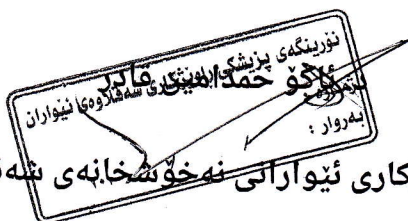 نۆرینگەی پزیشکی راوێژکاری شەقڵاوەی ئێواران
ئاکۆ حمدامین قادر
بەروار :
کاری ئێوارانی نەخۆشخانەی